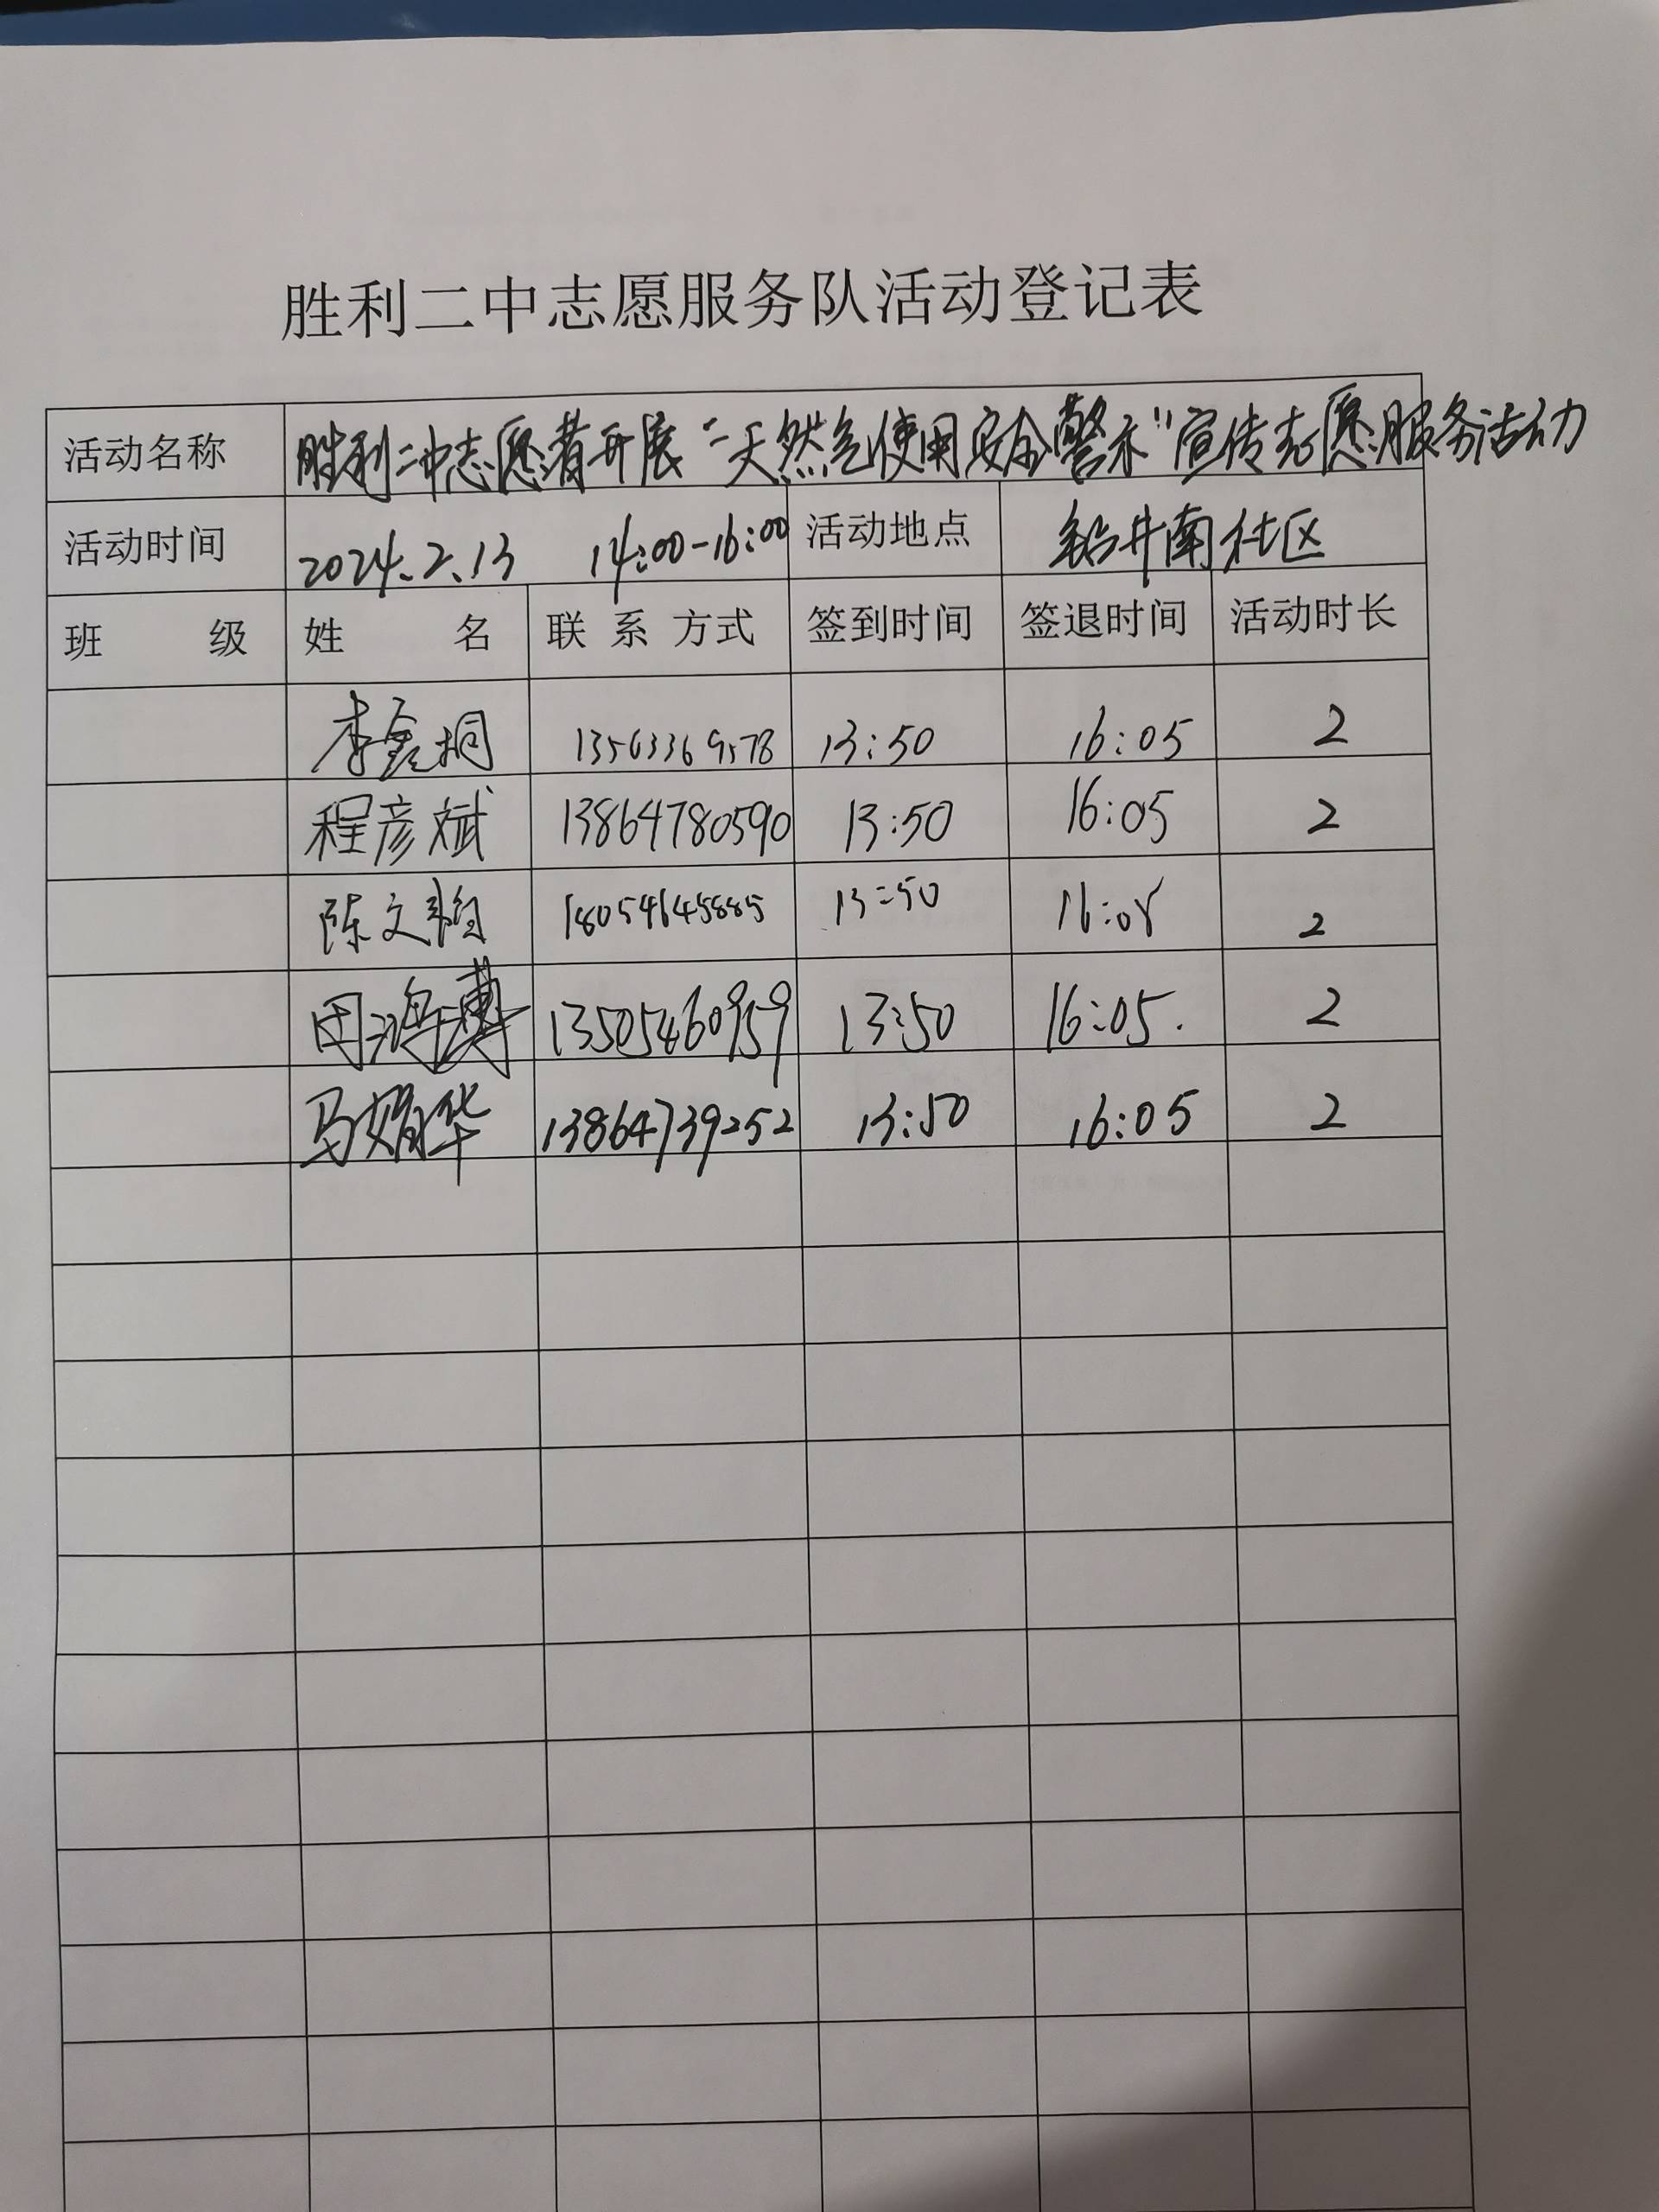 胜利二中志愿服务队活动登记表
活动名称 胜利二中志愿者开展“天然气使用安全警示”宣传志愿服务活动
活动时间 2024.2.13 14:00-16:00 活动地点 钻井南社区
班 级 姓 名 联 系 方式 签到时间 签退时间 活动时长
李鑫桐 13563369578 13:50 16:05 2
程彦斌 13864780590 13:50 16:05 2
陈文韵 18054645885 13:50 16:05 2
田鸿博 13505460959 13:50 16:05. 2
马娟华 13864739252 13:50 16:05 2